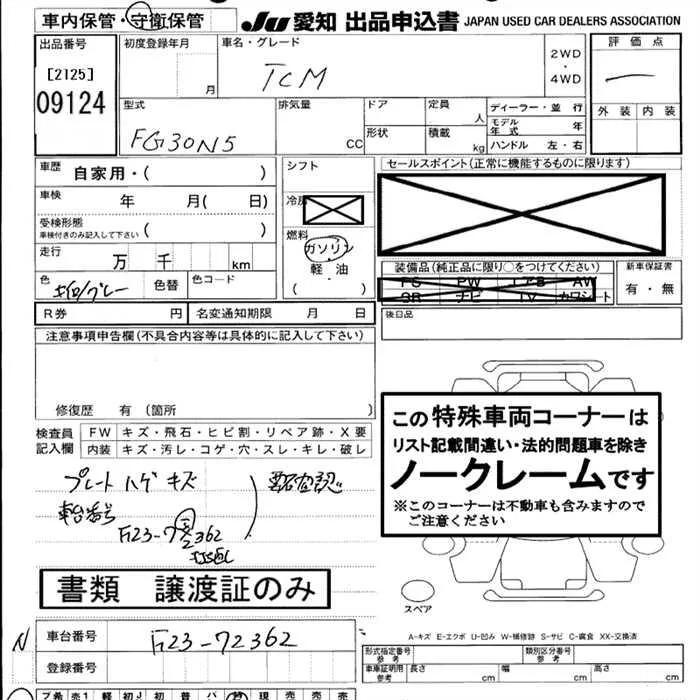 車内保管・守衛保管 JU 愛知 出品申込書 JAPAN USED CAR DEALERS ASSOCIATION
出品番号 初度登録年月 車名・グレード 評価点
[2125] 月 TCM 2WD・4WD
09124 外装 内装
型式 排気量 ドア 定員 人 ディーラー・並行
FG30N5 CC 形状 積載 kg モデル年式 年
ハンドル 左・右
車歴 自家用・( ) シフト セールスポイント(正常に機能するものに限ります)
車検 年 月( 日) 冷房
受検形態 車検付きのみ記入して下さい ( ) 燃料
ガソリン・軽油
( )
走行 万 千 km
装備品(純正品に限り○をつけてください) 新車保証書
PS PW エアB AW 有・無
SR ナビ TV カワシート
色 キイロ/グレー 色替 色コード
R券 円 名変通知期限 月 日 後日品
注意事項申告欄(不具合内容等は具体的に記入して下さい)
修復歴 有(箇所
検査員記入欄 FW キズ・飛石・ヒビ割・リペア跡・X要
内装 キズ・汚レ・コゲ・穴・スレ・キレ・破レ
この特殊車両コーナーは
リスト記載間違い・法的問題車を除き
ノークレームです
※このコーナーは不動車も含みますので
ご注意ください
プレート ハゲ キズ
車台番号
書類 譲渡証のみ
スペア
A-キズ E-エクボ U-凹み W-補修跡 S-サビ C-腐食 XX-交換済
N 車台番号 F123-72362
登録番号
形式指定番号 参考 類別区分番号 参考
車庫証明用 参考 長さ cm 幅 cm 高さ cm